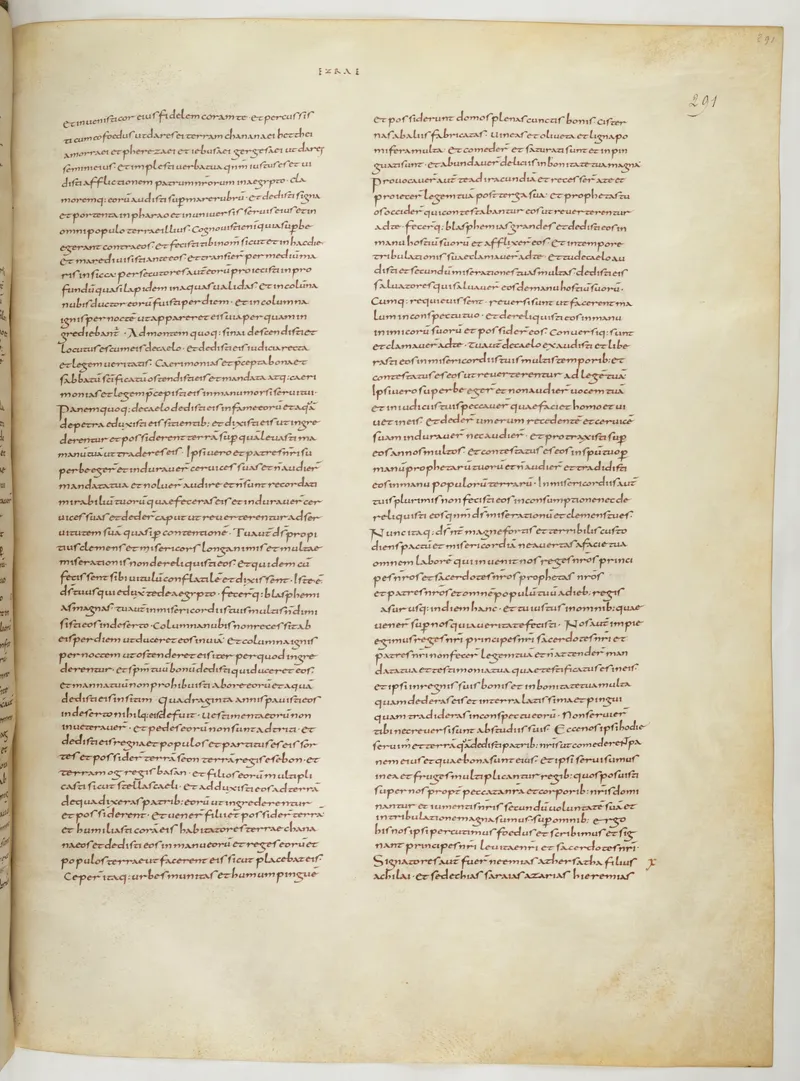 EZRAE
291
291
et inuenisti cor eius fidelem coram te · et percussis
ti cum eo foedus ut dares ei terram chananaei hetthei
amorraei et pherezaei et iebusaei gergesaei ut dares
semini eius · et implesti uerba tua qnm iustus es · et ui
disti afflictionem patrum nrorum in aegypto · cla
moremq: eorū audisti sup mare rubrū · et dedisti signa
et portenta in pharao et in uniuersis seruis eius et in
omni populo terrae illius · Cognouisti eni quia supbe
egerant contra eos · et fecisti tibi nom̄ sicut et in hac die ·
Et mare diuisisti ante eos · et transier̄ per mediū ma
ris in sicca · persecutores aut̄ eorū proiecisti in pro
fundū quasi lapidem in aquas ualidas · et in colūna
nubis ductor eorū fuisti per diem · et in columna
ignis per noctē ut appareret eis uia per quam in
grediebant̄ · Ad montem quoq: sinai descendisti et
locutus es cum eis de caelo · et dedisti eis iudicia recta
et legem ueritatis · Caerimonias et pcepta bona et
sabbatū scīficatū ostendisti eis et mandata atq: caeri
monias et legem pcepisti eis in manu mosi serui tui ·
Panem quoq: de caelo dedisti eis in fame eorū et aquā
de petra eduxisti eis sitientib: et dixisti eis ut ingre
derentur et possiderent terrā sup quā leuasti ma
nū tuā ut traderes eis · Ipsi uero et patres nri su
perbe eger̄ et indurauer̄ ceruices suas et n̄ audier̄
mandata tua et noluer̄ audire et n̄ sunt recordati
mirabiliū tuorū quae feceras eis · et indurauer̄ cer
uices suas et deder̄ caput ut reuerterentur ad ser
uitutem suā quasi p contentionē · Tu aut̄ ds propi
tius clemens et misericors longanimis et multae
miserationis non dereliquisti eos · Et quidem cū
fecissent sibi uitulū conflatilē et dixissent · Iste ē
ds tuus qui eduxit te de aegypto · fecer̄q: blasphemi
as magnas · tu aut̄ in misericordiis tuis multis n̄ dimi
sisti eos in deserto · Columna nubis non recessit ab
eis per diem ut duceret eos in uiā · et columna ignis
per noctem ut ostenderet eis iter per quod ingre
derentur · et spm̄ tuū bonū dedisti qui doceret eos ·
et manna tuū non prohibuisti ab ore eorū et aquā
dedisti eis in siti · Quadraginta annis pauisti eos
in deserto nihilq: eis defuit · Uestimenta eorū non
inueterauer̄ · et pedes eorū non sunt adtriti · et
dedisti eis regna et populos et partitus es eis sor
tes et possider̄ terrā seon · et terrā regis esebon · et
terram og regis basan · et filios eorū multipli
casti sicut stellas caeli · Et adduxisti eos ad terrā
de qua dixeras patrib: eorū ut ingrederentur
et possiderent · et uener̄ filii et possider̄ terrā
et humiliasti corā eis habitatores terrae chana
naeos et dedisti eos in manu eorū et reges eorū et
populos terrae ut facerent eis sicut placebat eis ·
Ceper̄ itaq: urbes munitas et humum pinguē
et possiderunt domos plenas cunctis bonis cister
nas ab aliis fabricatas · Uineas et oliueta et ligna po
mifera multa · Et comeder̄ et saturati sunt et inpin
guati sunt · et abundauer̄ deliciis in bonitate tua magna
Prouocauer̄ aut̄ te ad iracundiā et recesser̄ a te et
proiecer̄ legem tuā post terga sua · et prophetas tu
os occider̄ qui contestabantur eos ut reuerterentur
ad te · fecer̄q: blasphemias grandes et dedisti eos in
manu hostiū suorū et afflixer̄ eos · Et in tempore
tribulationis suae clamauer̄ ad te · et tu de caelo au
disti et secundū miserationes tuas multas dedisti eis
saluatores qui saluauer̄ eos de manu hostiū suorū ·
Cumq: requieuissent · reuersi sunt ut facerent ma
lum in conspectu tuo · et dereliquisti eos in manu
inimicorū suorū et possider̄ eos · Conuersiq: sunt
et clamauer̄ ad te · tu aut̄ de caelo exaudisti et libe
rasti eos in misericordiis tuis multis temporib: et
contestatus es eos ut reuerterentur ad legē tuā
Ipsi uero superbe eger̄ et non audier̄ uocem tuā
et in iudiciis tuis peccauer̄ quae faciet homo et ui
uet in eis · et deder̄ umerum recedentē et ceruicē
suam indurauer̄ nec audier̄ · et protraxisti sup
eos annos multos · et contestatus es eos in spū tuo p
manū prophetarū tuorū et n̄ audier̄ et tradidisti
eos in manu populorū terrarū · In misericordiis aut̄
tuis plurimis non fecisti eos in consumptionē nec de
reliquisti eos qnm ds miserationū et clemens tu es ·
Nunc itaq: ds nr̄ magne fortis et terribilis custo
diens pactū et misericordiā ne auertas a facie tua
omnem laborē qui inuenit nos reges nros princi
pes nros et sacerdotes nros prophetas nros
et patres nros et omne populū tuū a dieb: regis
assur usq: in diem hanc · et tu iustus in omnib: quae
uener̄ sup nos quia ueritatē fecisti · Nos aut̄ impie
egimus reges nri principes nri sacerdotes nri et
patres nri non fecer̄ legem tuā et n̄ attender̄ man
data tua et testimonia tua quae testificatus es in eis ·
et ipsi in regnis suis bonis et in bonitate tua multa
quam dederas eis et in terra latissima et pingui
quam tradideras in conspectu eorū · Non seruier̄
tibi nec reuersi sunt ab studiis suis · Ecce nos ipsi hodie
serui sum̄ et terra quā dedisti patrib: nris ut comederent pa
nem eius et quae bona sunt eius · et ipsi serui sumus
in ea et fruges multiplicantur regib: quos posuisti
super nos propt̄ peccata nra et corporib: nris domi
nantur et iumentis nris secundū uoluntatē suā et
in tribulatione magna sumus · sup omnib: ergo
his nos ipsi percutimus foedus et scribimus et sig
nant principes nri leuitae nri et sacerdotes nri ·
Signatores aut̄ fuer̄ neemias athersatha filius
achilai · Et sedechias saraias azarias hieremias